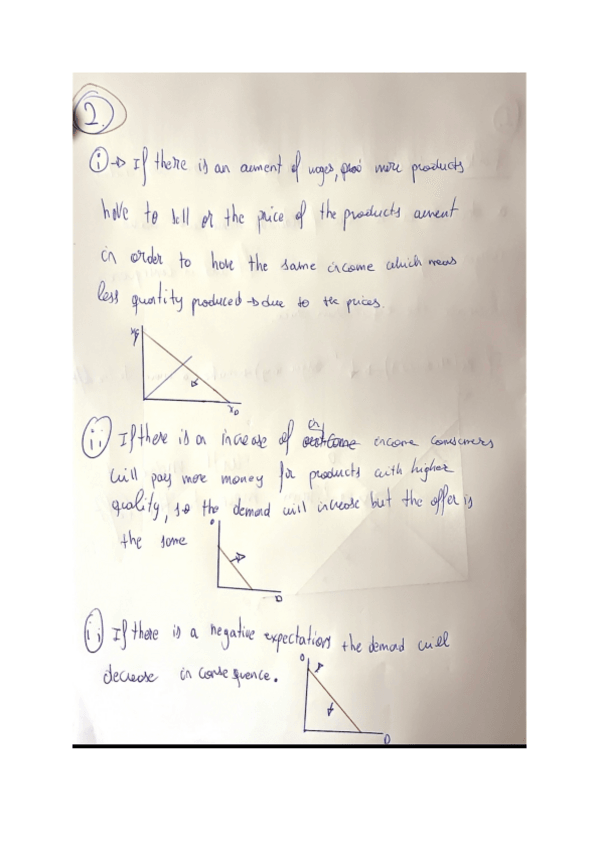 2.
i → If there is an aument of wages, more products
have to sell or the price of the products aument
in order to have the same income which means
less quantity produced → due to the prices.
x₀
ii If there is an increase of in income consumers
will pay more money for products with higher
quality, so the demand will increase but the offer is
the same
D
If there is a negative expectations the demand will
decrease in consequence.
P
D